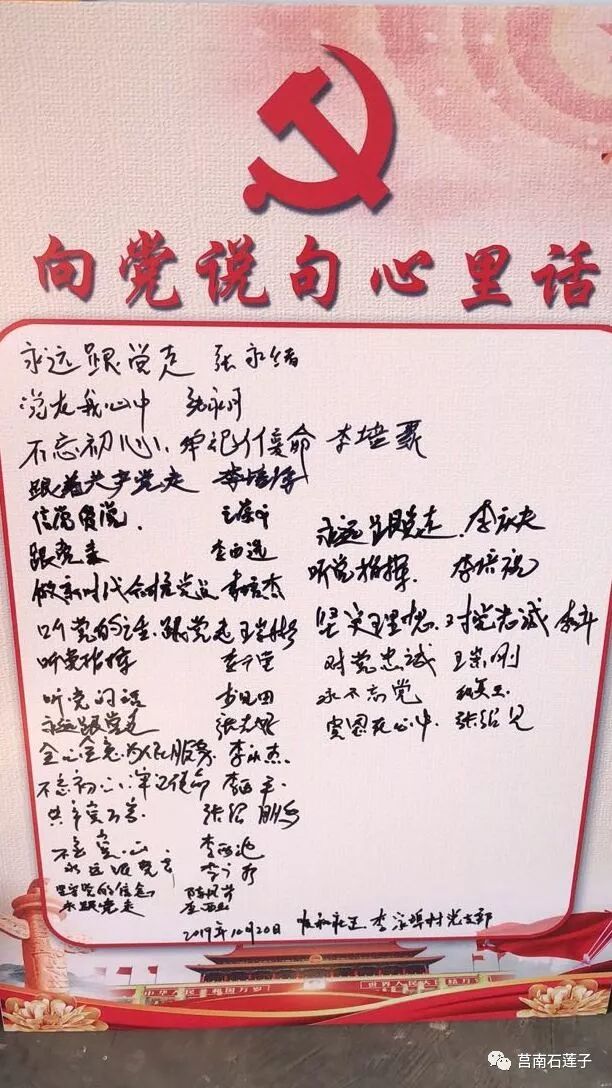 向党说句心里话
永远跟党走 张永绪
党在我心中
不忘初心、牢记使命 李培聚
跟着共产党走 李培
信党爱党、王
跟党走 李西选
做新时代合格党员 李 杰
听党的话.跟党走 王崇
听党指挥 李
听党的话 李见田
永远跟党走 张
全心全意为人民服务. 李永杰.
不忘初心,牢记使命 李西平.
共产党万岁. 张绍朋
不忘党心 李西池
永远跟党走 李
坚守党的信念 陈
永跟党走 李西
永远跟党走. 李永夫
听党指挥. 李培祝
坚定理想.对党忠诚 李
对党忠诚 王崇刚
永不忘党
党恩在心中. 张绍见
2019年10月20日 社区 李家埠村党支部
中华人民共和国万岁
世界人民大团结万岁
莒南石莲子